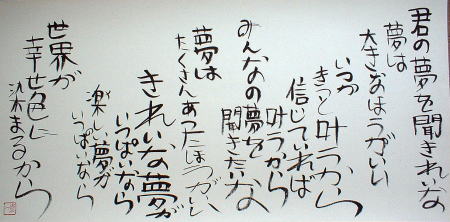 君の夢を聞きれいな
夢は
大きなほうがいい
いつか
きっと叶うから
信じていれば
叶うから
みんなの夢を
聞きたいな
夢は
たくさんあったほうがいい
きれいな夢が
いっぱいなら
楽しい夢が
いっぱいなら
世界が
幸せ色に
染まるから